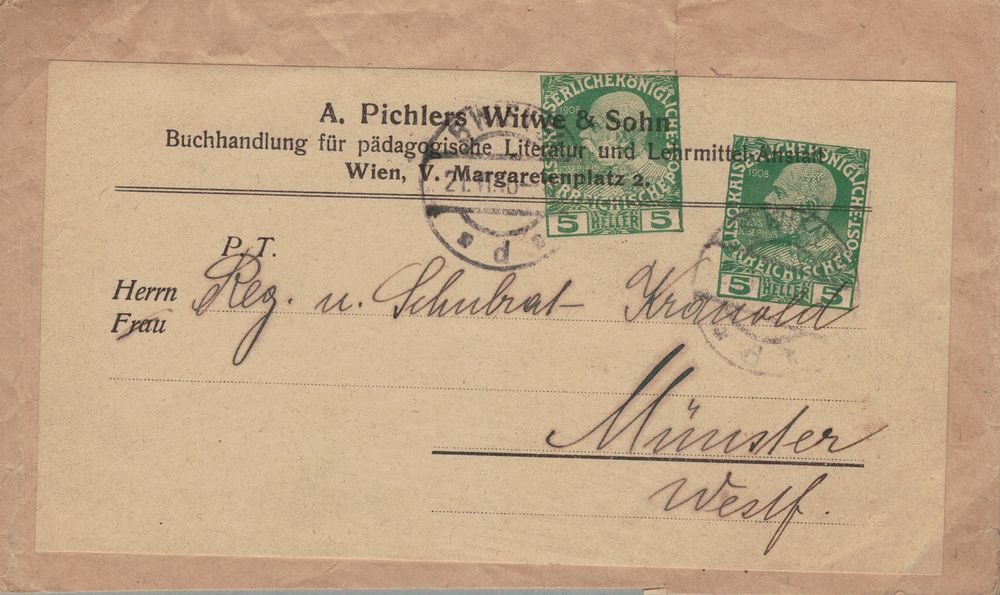 A. Pichlers Witwe & Sohn
Buchhandlung für pädagogische Literatur und Lehrmittel-Anstalt
Wien, V. Margaretenplatz 2.
KAISERLICHE KÖNIGLICHE
1908
ÖSTERREICHISCHE POST
5 HELLER 5
KAISERLICHE KÖNIGLICHE
1908
ÖSTERREICHISCHE POST
5 HELLER 5
P. T.
Herrn Reg. u. Schulrat
Frau
Münster
Westf.